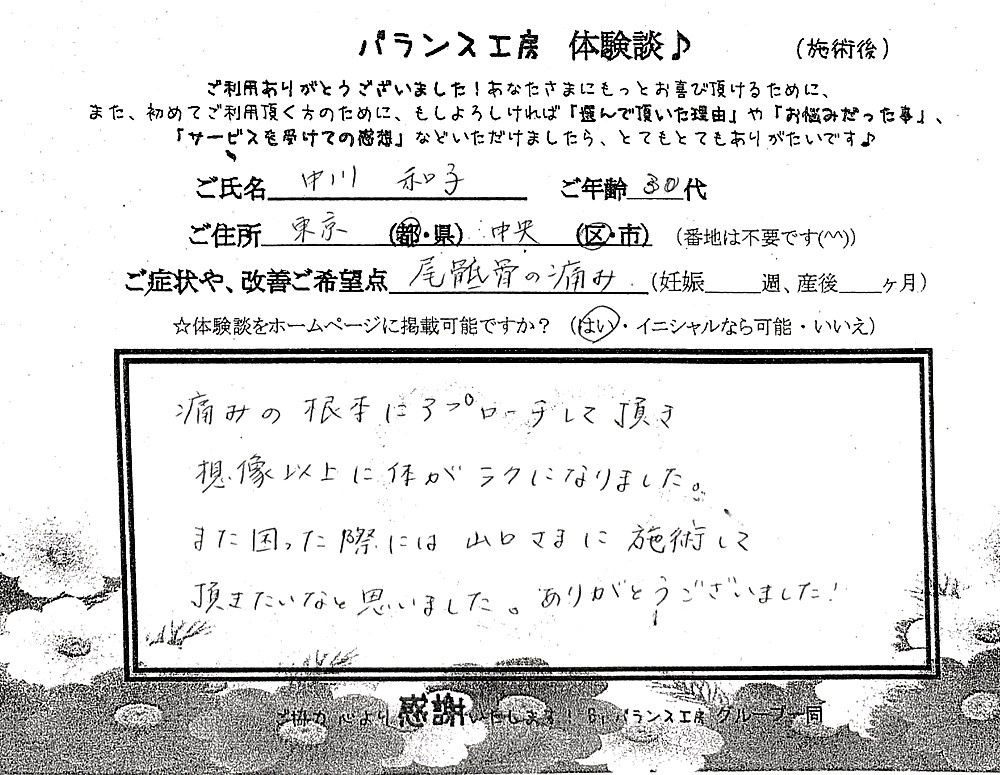 バランス工房 体験談♪ (施術後)
ご利用ありがとうございました！あなたさまにもっとお喜び頂けるために、
また、初めてご利用頂く方のために、もしよろしければ「選んで頂いた理由」や「お悩みだった事」、
「サービスを受けての感想」などいただけましたら、とてもとてもありがたいです♪
ご氏名 中川 和子 ご年齢 30代
ご住所 東京 (都・県) 中央 (区・市) (番地は不要です(^^))
ご症状や、改善ご希望点 尾骶骨の痛み (妊娠 週、産後 ヶ月)
☆体験談をホームページに掲載可能ですか？ (はい・イニシャルなら可能・いいえ)
痛みの根本にアプローチして頂き
想像以上に体がラクになりました。
また困った際には山口さまに施術して
頂きたいなと思いました。ありがとうございました！
ご協力 心より感謝いたします！ By バランス工房 グループ一同